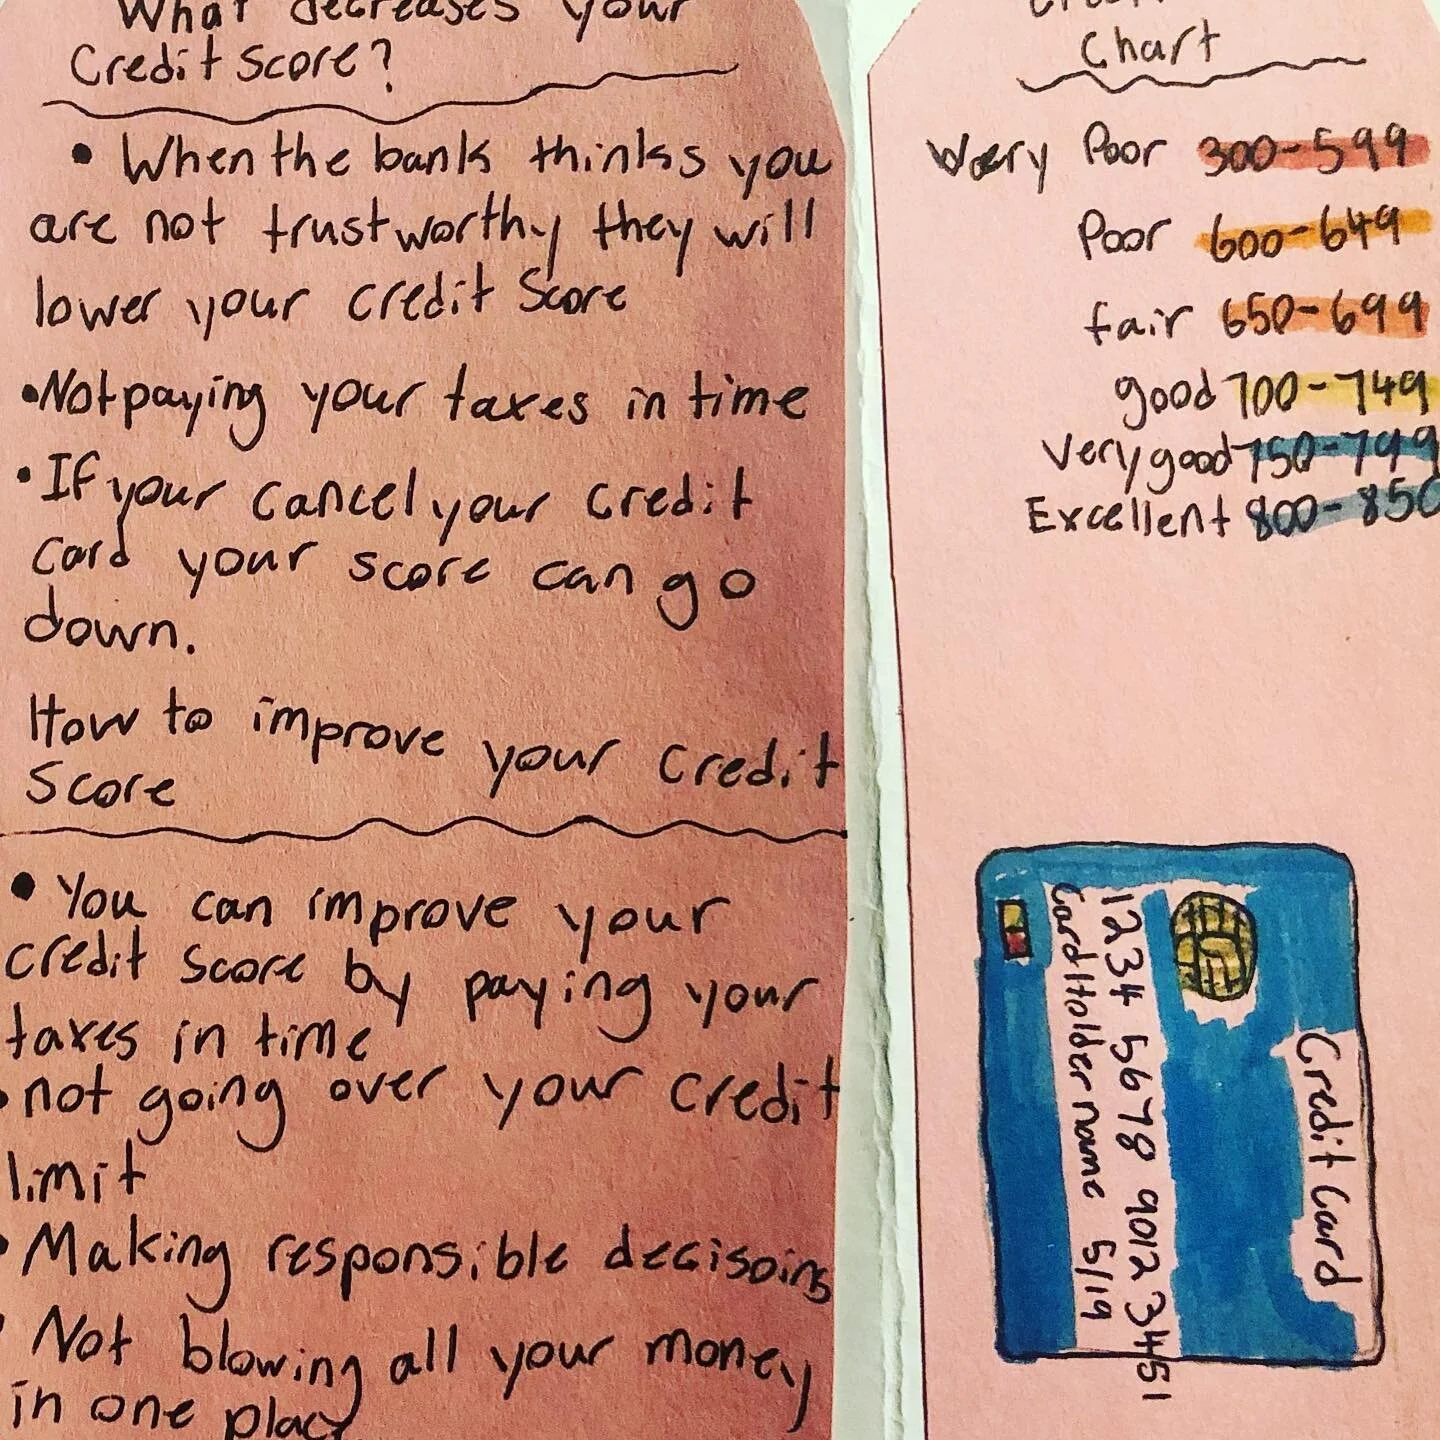 What decreases your
Credit Score?
• When the bank thinks you
are not trustworthy they will
lower your credit Score
• Not paying your taxes in time
• If your cancel your credit
card your score can go
down.
How to improve your credit
Score
• You can improve your
credit score by paying your
taxes in time
• not going over your credit
limit
• Making responsible decisoins
• Not blowing all your money
in one place
Chart
Very Poor 300-599
Poor 600-649
fair 650-699
good 700-749
Very good 750-799
Excellent 800-850
Credit Card
1234 5678 9012 3451
CardHolder name 5/19